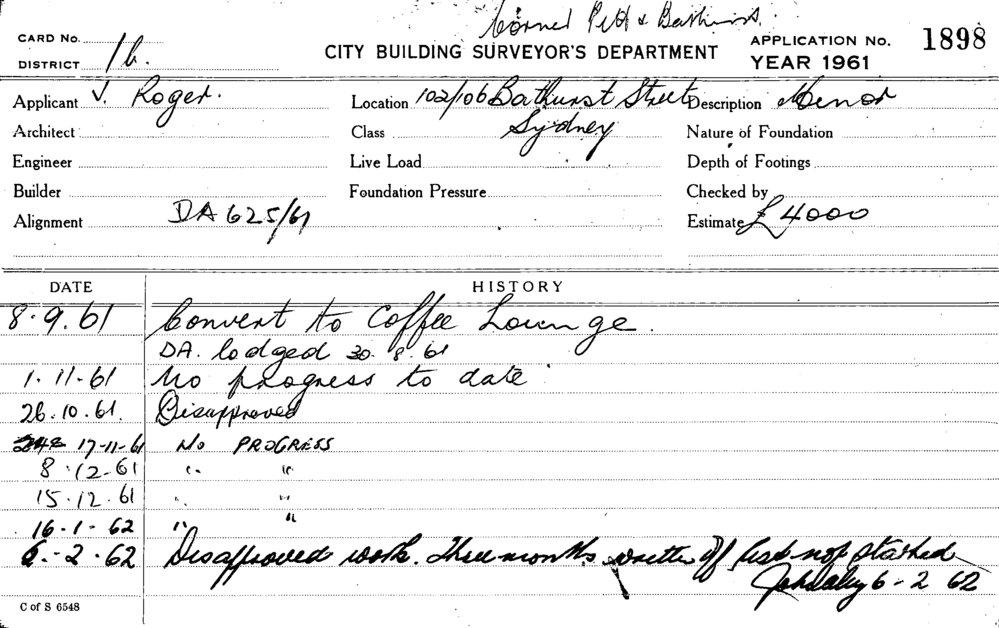 Corner Pitt & Bathurst.
CARD No.
CITY BUILDING SURVEYOR'S DEPARTMENT
APPLICATION No. 1898
DISTRICT 1b.
YEAR 1961
Applicant V. Roger. Location 102/106 Bathurst Street Description Minor
Architect Class Sydney Nature of Foundation
Engineer Live Load Depth of Footings
Builder Foundation Pressure Checked by
Alignment DA 625/61 Estimate £4000
DATE HISTORY
8.9.61 Convert to Coffee Lounge.
DA. lodged 30.8.61
1.11.61 No progress to date
26.10.61. Disapproved
17-11-61 No PROGRESS
8.12-61 " "
15.12.61 " "
16-1-62 " "
6.-2.62 Disapproved work. Three months written off list not started
6-2 62
C of S 6548